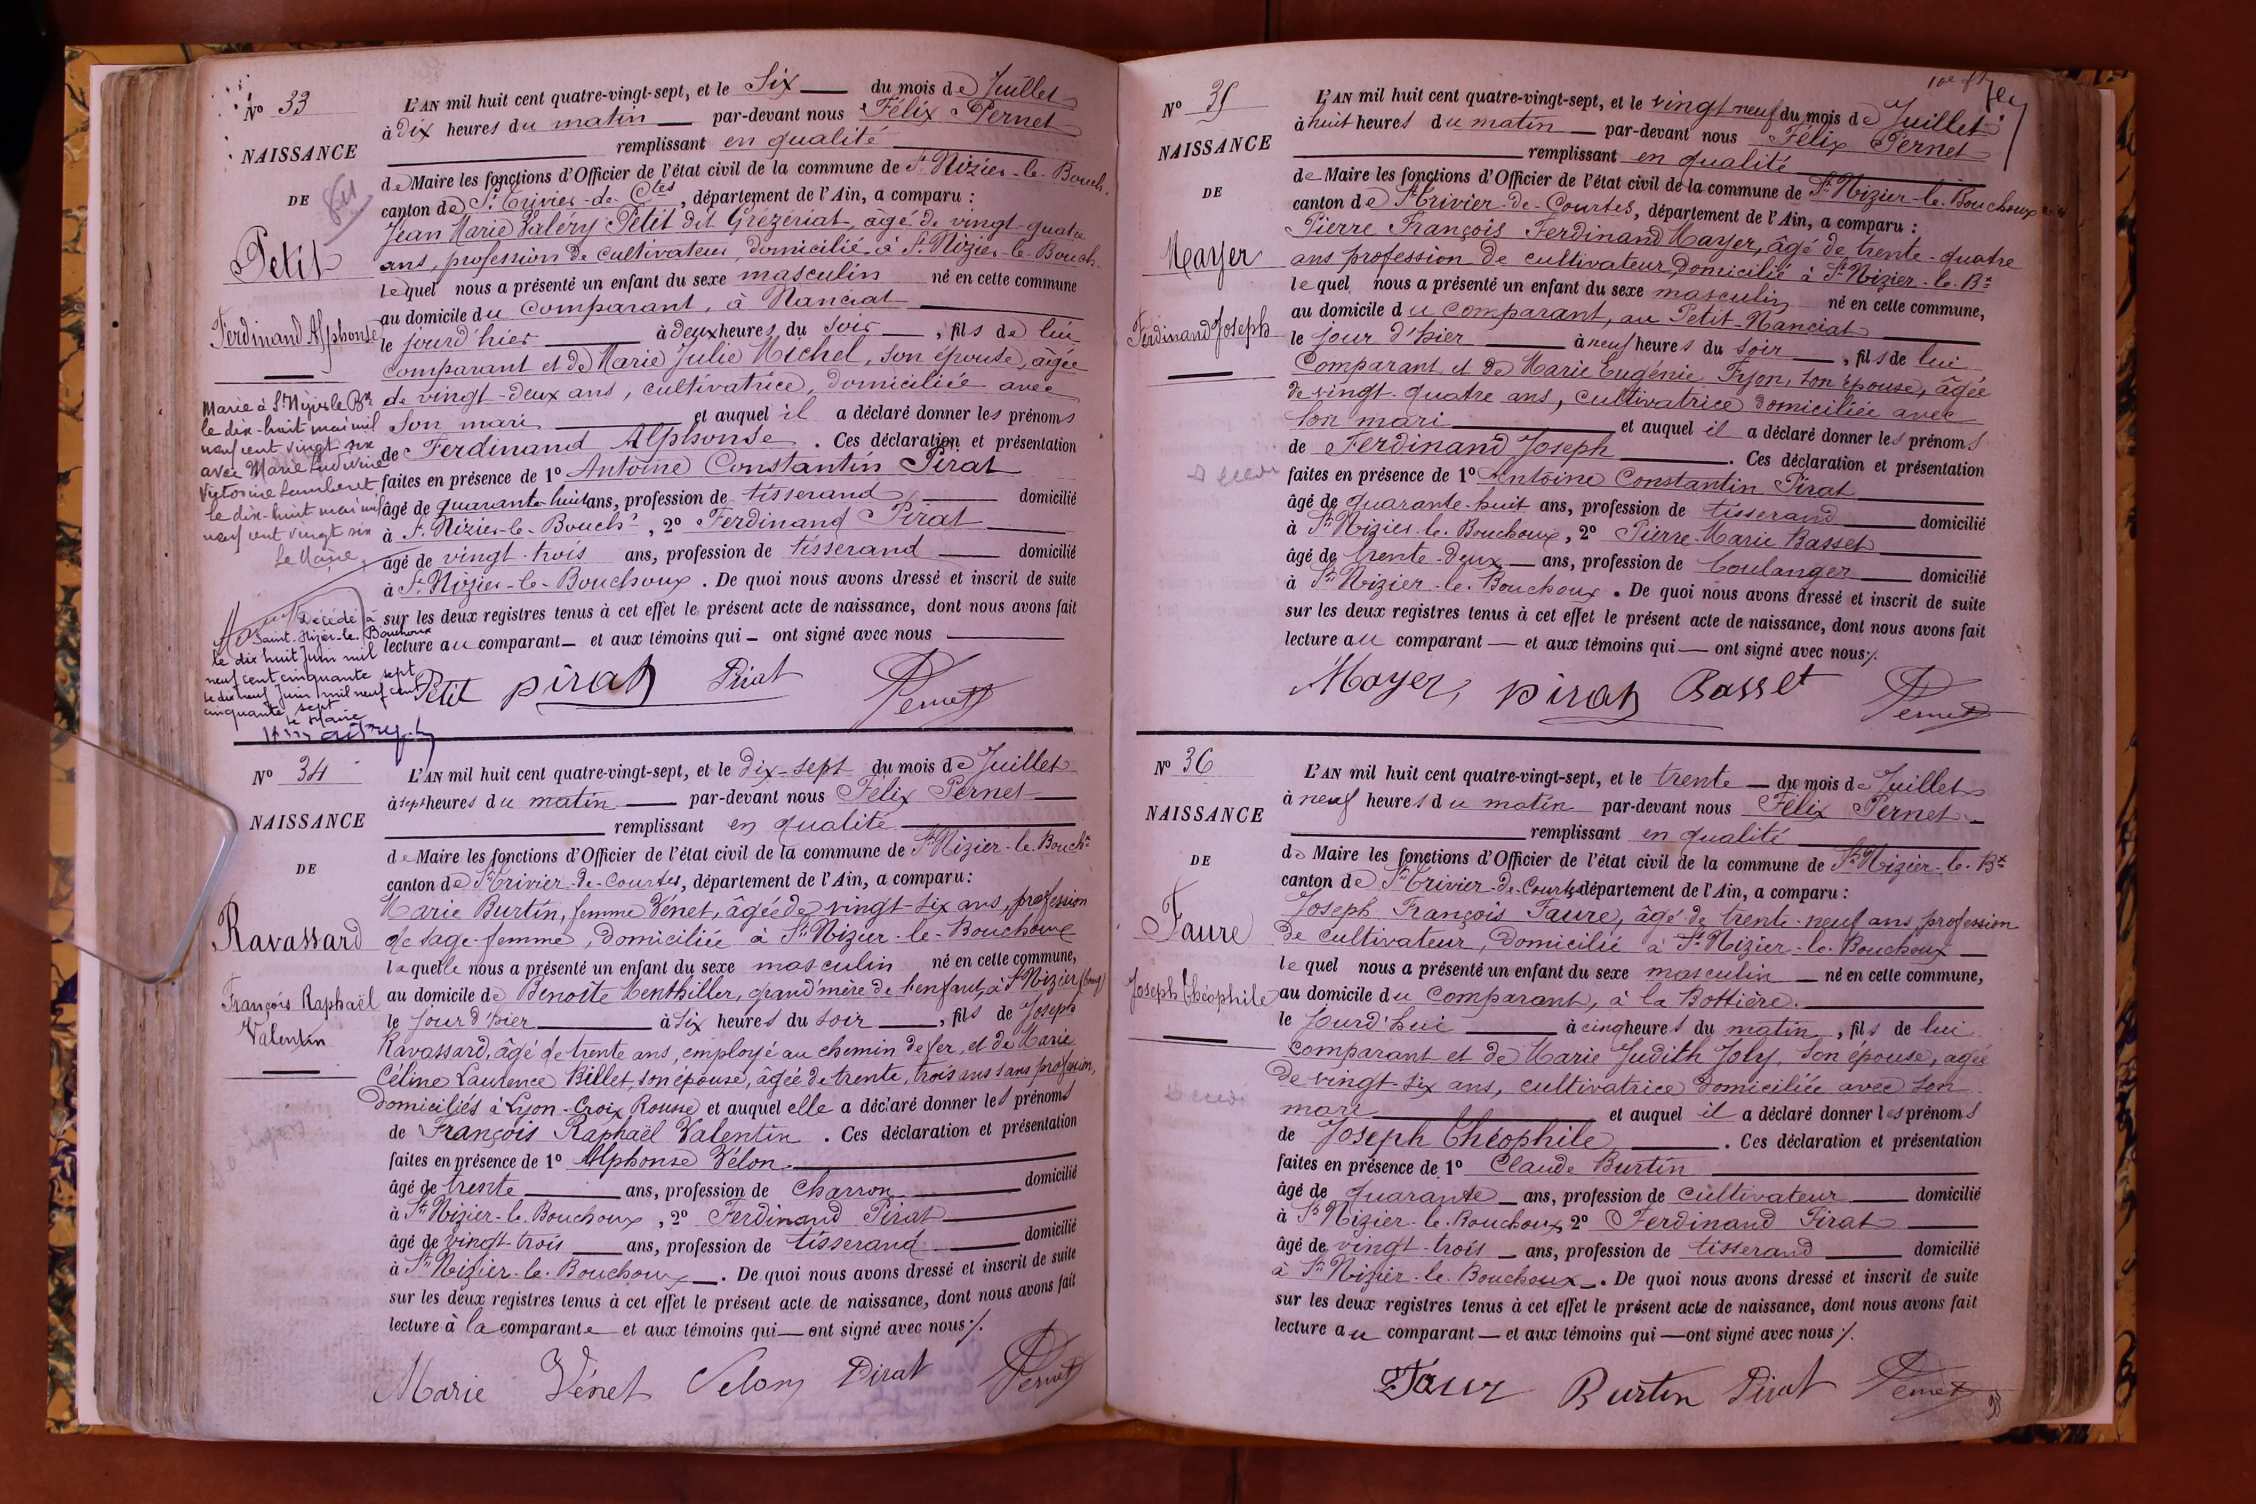 N° 33
NAISSANCE
DE
Petit
Ferdinand Alphonse
Marié à St Nizier le Bx
le dix-huit mai mil
neuf cent vingt six
avec Marie Ludivine
Victorine Lamberet
le dix-huit mai mil
neuf cent vingt six
Le Maire,
Décédé à
Saint-Nizier-le-Bouchoux
le dix huit Juin mil
neuf cent cinquante sept
le dix neuf Juin mil neuf cent
cinquante sept
Le Maire
L'AN mil huit cent quatre-vingt-sept, et le Six du mois de Juillet
à dix heures du matin par-devant nous Félix Pernet
remplissant en qualité
de Maire les fonctions d'Officier de l'état civil de la commune de St Nizier-le-Bouch.
canton de St Trivier-de-Ctes, département de l'Ain, a comparu :
Jean Marie Valéry Petit dit Grézériat, âgé de vingt-quatre
ans, profession de cultivateur, domicilié à St Nizier-le-Bouch.
lequel nous a présenté un enfant du sexe masculin né en cette commune
au domicile du comparant, à Nanciat
le jourd'hier à deux heures du soir, fils de lui
comparant et de Marie Julie Michel, son épouse, âgée
de vingt-deux ans, cultivatrice, domiciliée avec
son mari et auquel il a déclaré donner les prénoms
de Ferdinand Alphonse. Ces déclaration et présentation
faites en présence de 1° Antoine Constantin Pirat
âgé de quarante-huit ans, profession de tisserand, domicilié
à St Nizier-le-Bouchx, 2° Ferdinand Pirat
âgé de vingt-trois ans, profession de tisserand domicilié
à St Nizier-le-Bouchoux. De quoi nous avons dressé et inscrit de suite
sur les deux registres tenus à cet effet le présent acte de naissance, dont nous avons fait
lecture au comparant et aux témoins qui ont signé avec nous
Petit Pirat Pirat Pernet
N° 34
NAISSANCE
DE
Ravassard
François Raphaël
Valentin
L'AN mil huit cent quatre-vingt-sept, et le dix-sept du mois de Juillet
à sept heures du matin par-devant nous Félix Pernet
remplissant en qualité
de Maire les fonctions d'Officier de l'état civil de la commune de St Nizier-le-Bouchx
canton de St Trivier-de-Courtes, département de l'Ain, a comparu :
Marie Burtin, femme Vénet, âgée de vingt-six ans, profession
de sage-femme, domiciliée à St Nizier-le-Bouchoux
laquelle nous a présenté un enfant du sexe masculin né en cette commune,
au domicile de Benoite Menthiller, grand'mère de l'enfant, à St Nizier
le jourd'hier à six heures du soir, fils de Joseph
Ravassard, âgé de trente ans, employé au chemin de fer, et de Marie
Céline Laurence Billet, son épouse, âgée de trente, trois ans sans profession,
domiciliés à Lyon-Croix Rousse et auquel elle a déclaré donner les prénoms
de François Raphaël Valentin. Ces déclaration et présentation
faites en présence de 1° Alphonse Vélon
âgé de trente ans, profession de charron domicilié
à St Nizier-le-Bouchoux, 2° Ferdinand Pirat
âgé de vingt-trois ans, profession de tisserand domicilié
à St Nizier-le-Bouchoux. De quoi nous avons dressé et inscrit de suite
sur les deux registres tenus à cet effet le présent acte de naissance, dont nous avons fait
lecture à la comparante et aux témoins qui ont signé avec nous./.
Marie Vénet Velon Pirat Pernet
N° 35
NAISSANCE
DE
Mayer
Ferdinand Joseph
L'AN mil huit cent quatre-vingt-sept, et le vingt neuf du mois de Juillet
à huit heures du matin par-devant nous Félix Pernet
remplissant en qualité
de Maire les fonctions d'Officier de l'état civil de la commune de St Nizier-le-Bouchoux
canton de St Trivier-de-Courtes, département de l'Ain, a comparu :
Pierre François Ferdinand Mayer, âgé de trente-quatre
ans profession de cultivateur, domicilié à St Nizier-le-Bx
lequel nous a présenté un enfant du sexe masculin né en cette commune,
au domicile du comparant, au Petit-Nanciat
le jour d'hier à neuf heures du soir, fils de lui
Comparant, et de Marie Eugénie Fyon, son épouse, âgée
de vingt-quatre ans, cultivatrice domiciliée avec
son mari et auquel il a déclaré donner les prénoms
de Ferdinand Joseph. Ces déclaration et présentation
faites en présence de 1° Antoine Constantin Pirat
âgé de quarante-huit ans, profession de tisserand domicilié
à St Nizier-le-Bouchoux, 2° Pierre-Marie Basset
âgé de trente-deux ans, profession de boulanger domicilié
à St Nizier-le-Bouchoux. De quoi nous avons dressé et inscrit de suite
sur les deux registres tenus à cet effet le présent acte de naissance, dont nous avons fait
lecture au comparant et aux témoins qui ont signé avec nous./.
Mayer, Pirat Basset Pernet
N° 36
NAISSANCE
DE
Faure
Joseph Théophile
L'AN mil huit cent quatre-vingt-sept, et le trente du mois de Juillet
à neuf heures du matin par-devant nous Félix Pernet
remplissant en qualité
de Maire les fonctions d'Officier de l'état civil de la commune de St Nizier-le-Bx
canton de St Trivier-de-Courtes département de l'Ain, a comparu :
Joseph François Faure, âgé de trente-neuf ans, profession
de cultivateur, domicilié à St Nizier-le-Bouchoux
lequel nous a présenté un enfant du sexe masculin né en cette commune,
au domicile du comparant, à la Bottière.
le jourd'hui à cinq heures du matin, fils de lui
comparant et de Marie Judith Joly, son épouse, âgée
de vingt-six ans, cultivatrice domiciliée avec son
mari et auquel il a déclaré donner les prénoms
de Joseph Théophile. Ces déclaration et présentation
faites en présence de 1° Claude Burtin
âgé de quarante ans, profession de cultivateur domicilié
à St Nizier-le-Bouchoux, 2° Ferdinand Pirat
âgé de vingt-trois ans, profession de tisserand domicilié
à St Nizier-le-Bouchoux. De quoi nous avons dressé et inscrit de suite
sur les deux registres tenus à cet effet le présent acte de naissance, dont nous avons fait
lecture au comparant et aux témoins qui ont signé avec nous./.
Faure Burtin Pirat Pernet